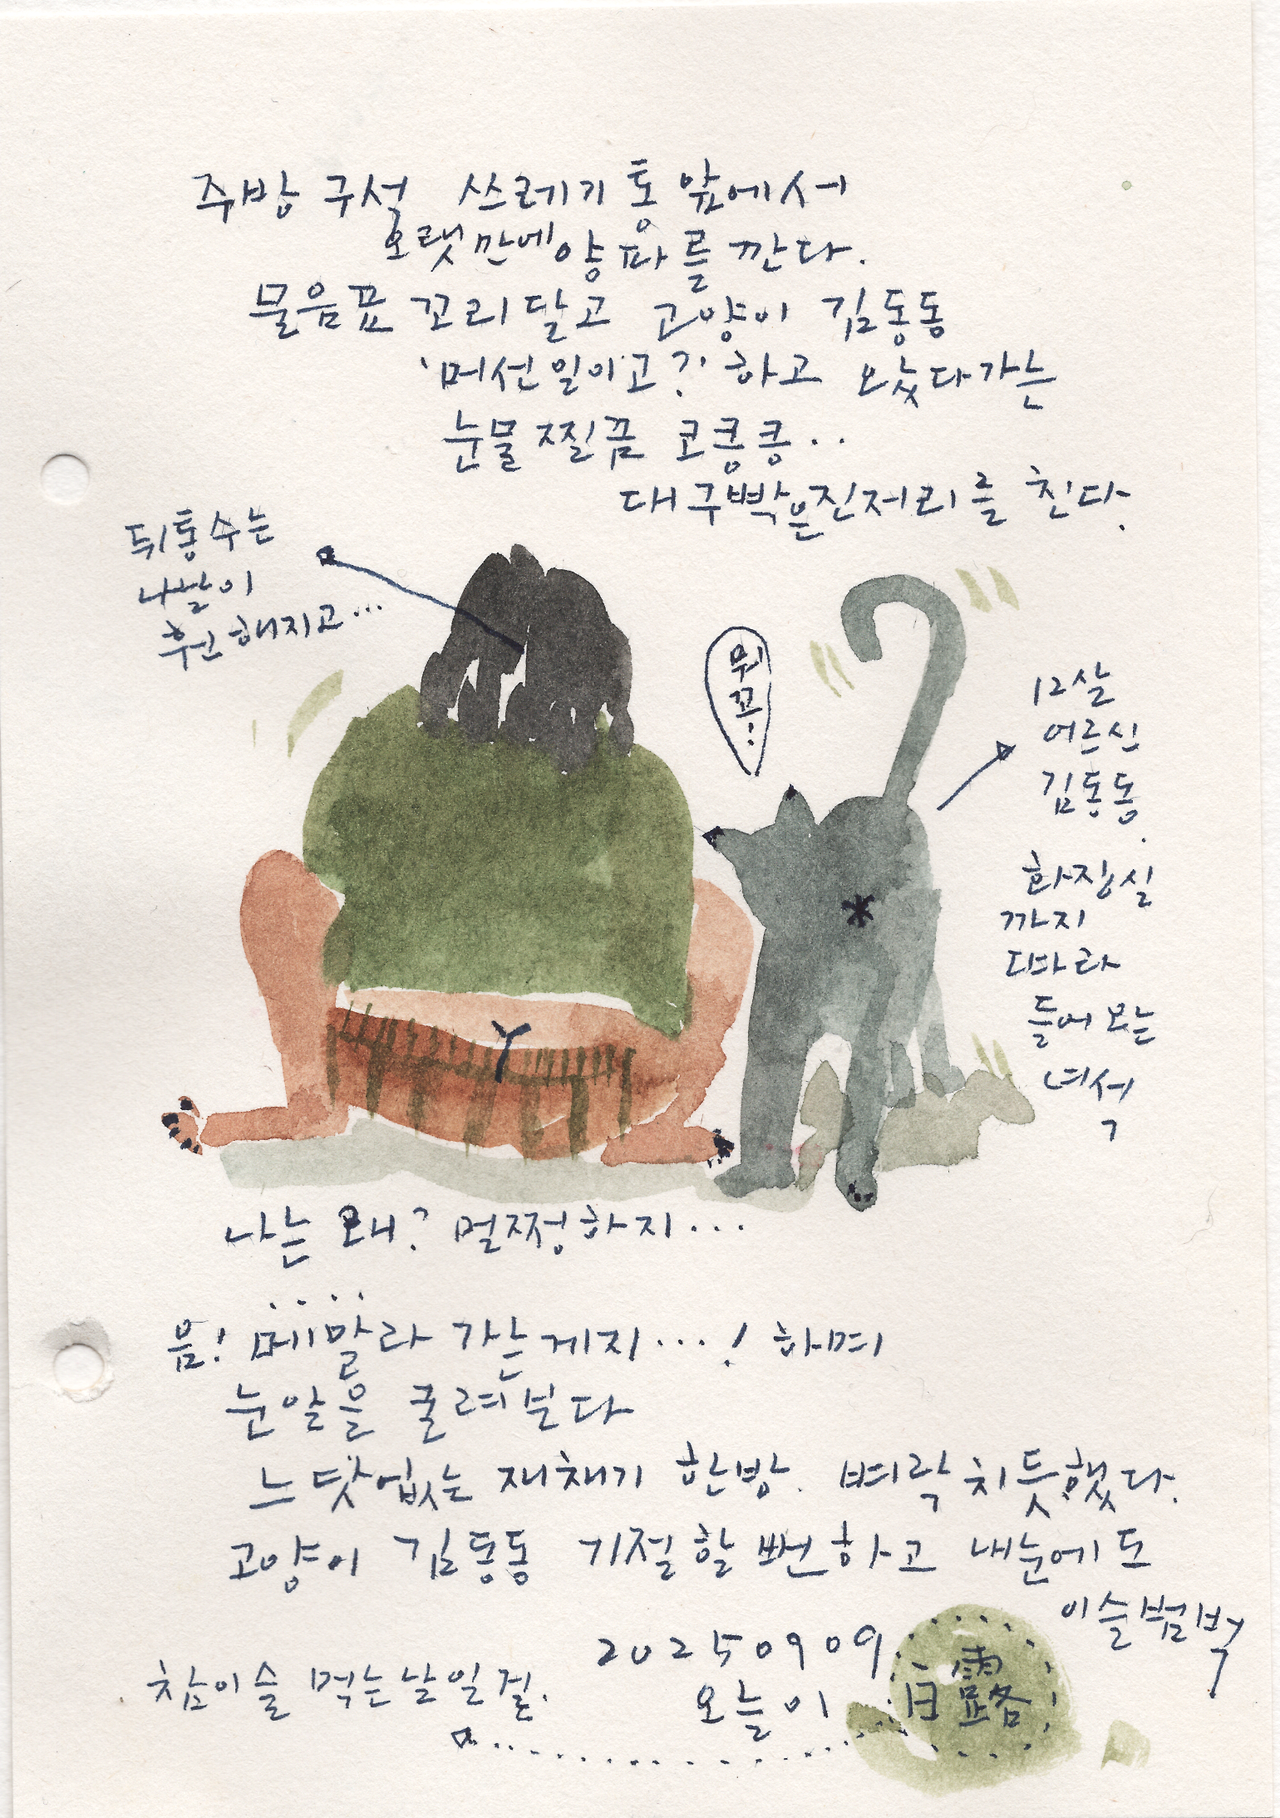 주방 구석 쓰레기통 앞에서
오랫만에 양파를 깐다.
물음표 꼬리달고 고양이 김동동
'머선일이고?' 하고 왔다가는
눈물찔끔 코킁킁..
대구빡은진저리를 친다.
뒤통수는
나날이
훤해지고...
뭐꼬!
12살
어르신
김동동.
화장실
까지
따라
들어오는
녀석
나는 왜? 멀쩡하지...
음! 메말라 가는게지...! 하며
눈알을 굴려본다
느닷없는 재채기 한방. 벼락치듯했다.
고양이 김동동 기절할뻔하고 내눈에도
이슬범벅
20250909
오늘이 白露
참이슬 먹는날일걸.